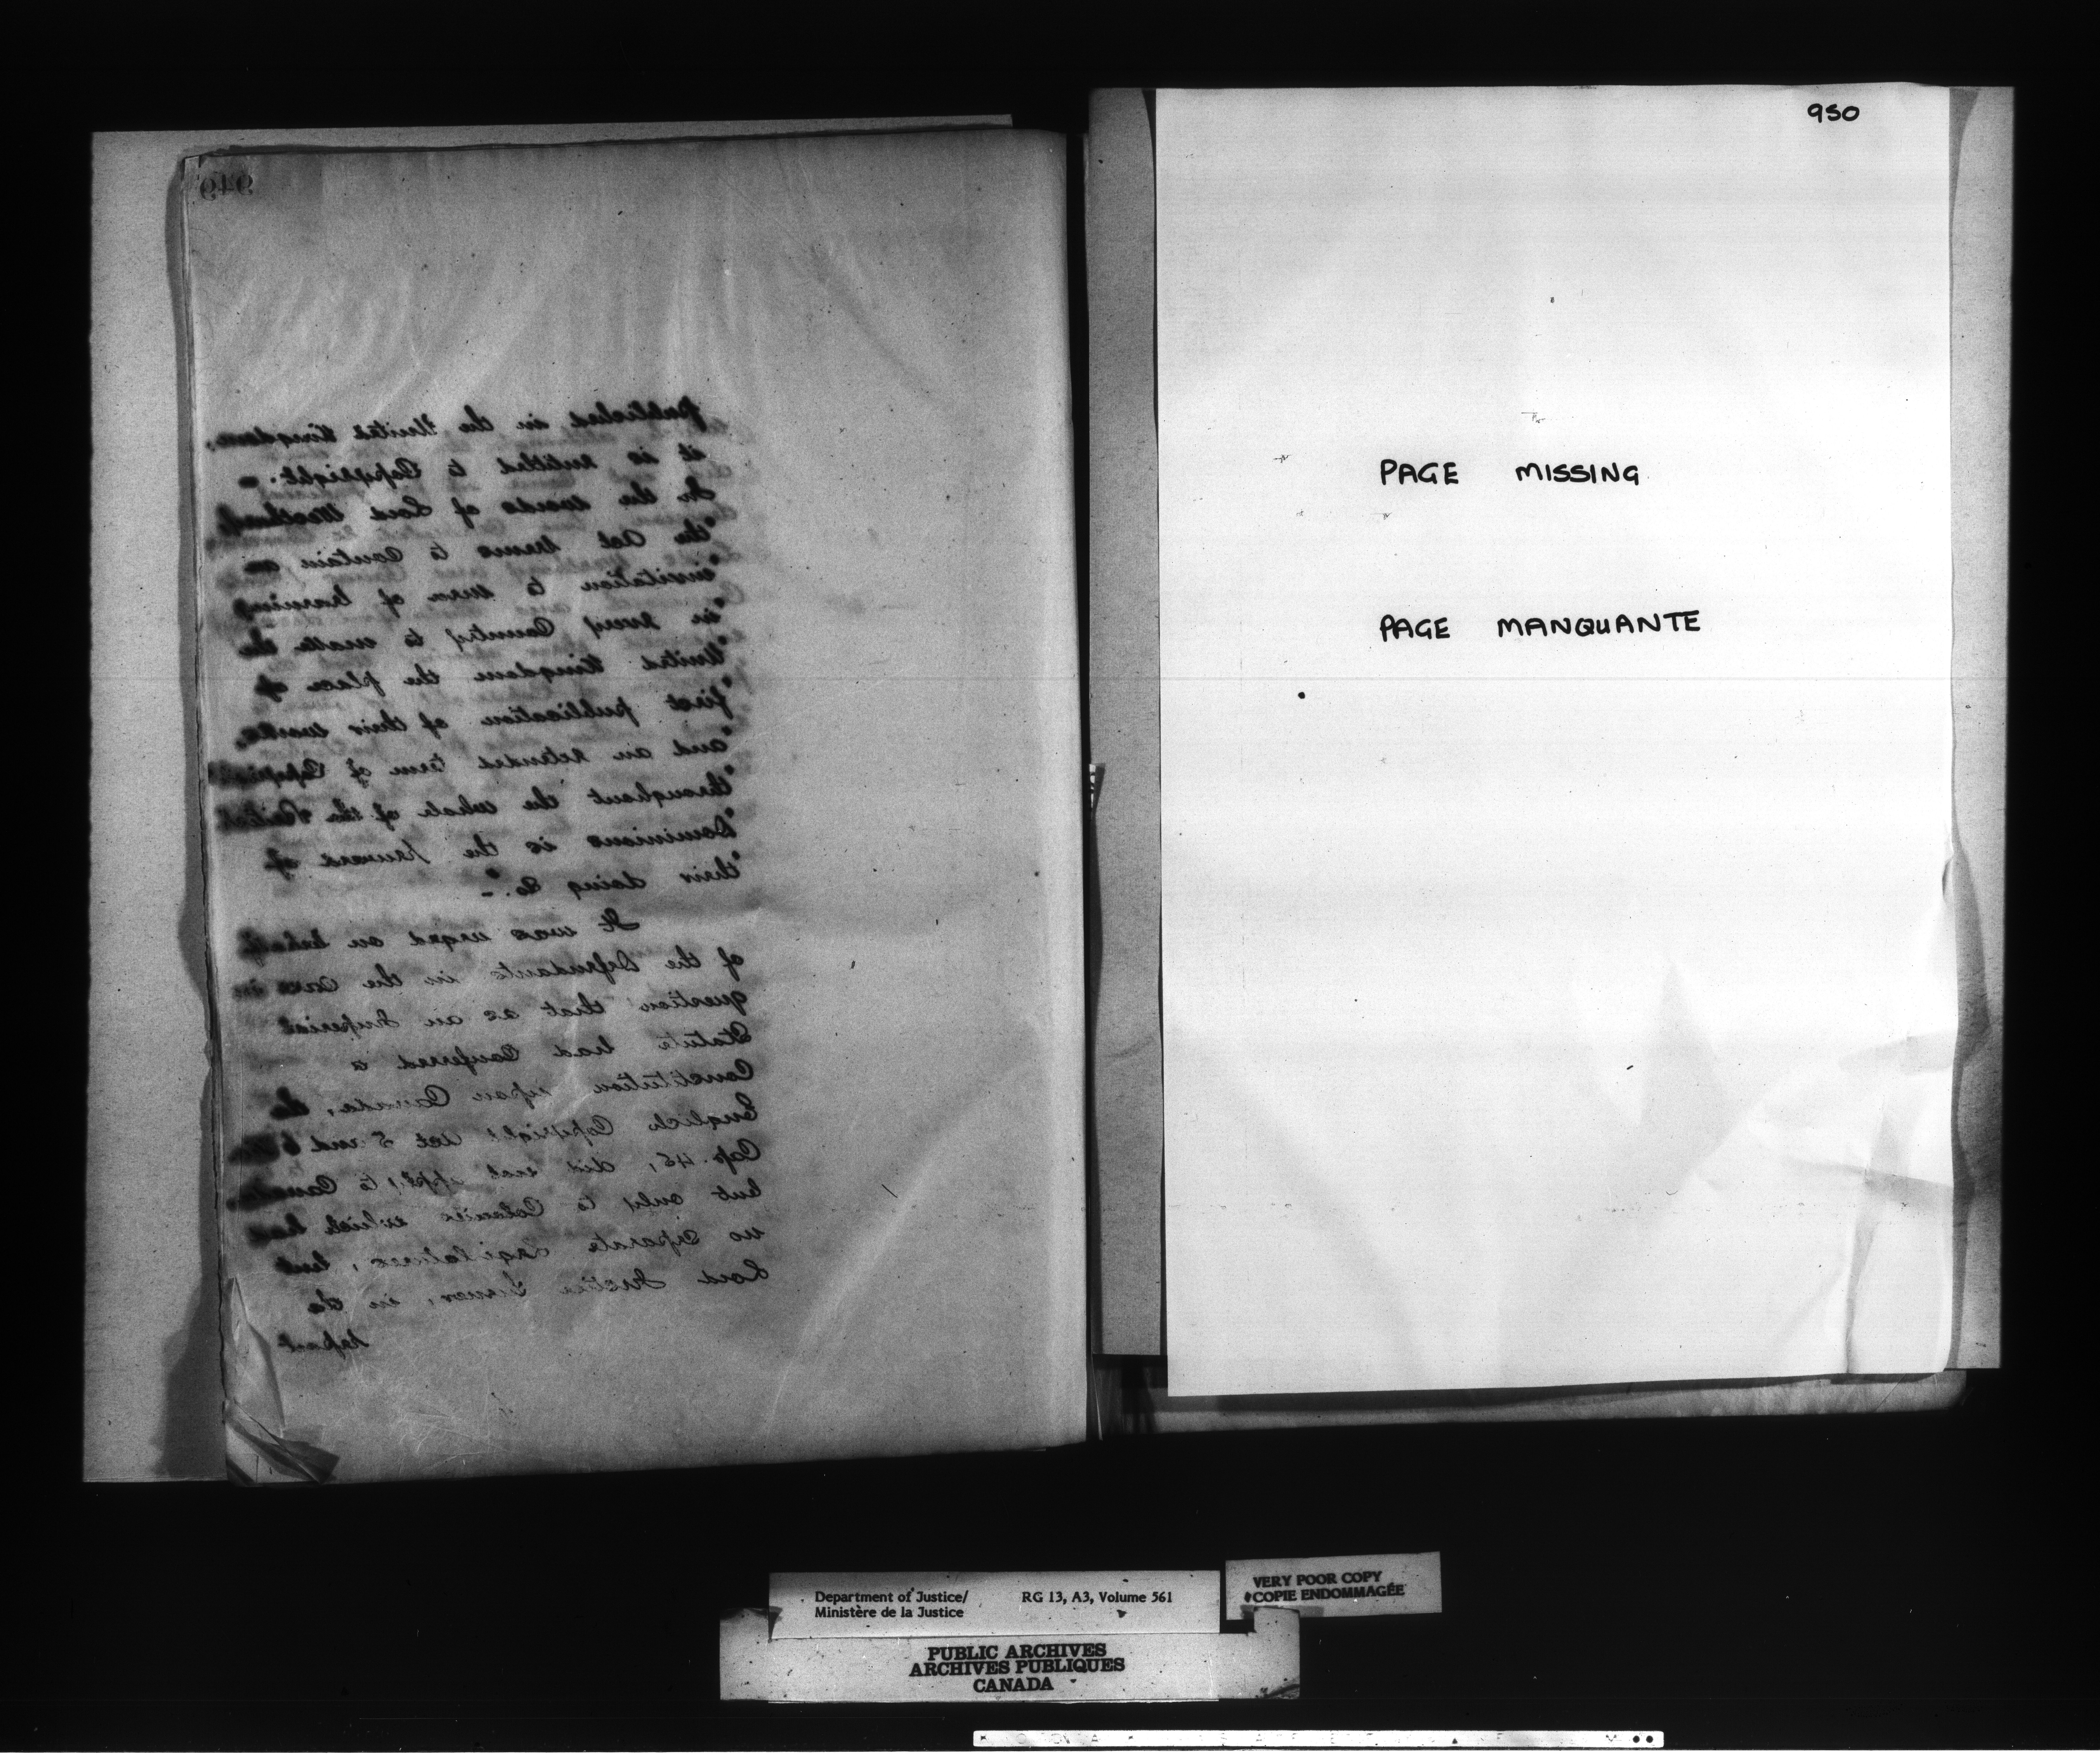 949
published in the United Kingdom,
it is entitled to Copyright. –
In the words of Lord Westbury,
"the Act seems to contain an
"invitation to men of learning
"in every Country to make the
"United Kingdom the place of
"first publication of their works,
"and an extended term of Copyright
"throughout the whole of the British
"Dominions is the reward of
"their doing so." –
It was urged on behalf
of the Defendants in the case in
question that as an Imperial
Statute had conferred a
Constitution upon Canada, the
English Copyright Act 5 and 6 Vic
Cap. 45, did not apply to Canada,
but only to Colonies which had
no separate Legislatures, but
Lord Justice Turner, in the
report
950
PAGE MISSING
PAGE MANQUANTE
Department of Justice/
Ministère de la Justice
RG 13, A3, Volume 561
VERY POOR COPY
COPIE ENDOMMAGÉE
PUBLIC ARCHIVES
ARCHIVES PUBLIQUES
CANADA